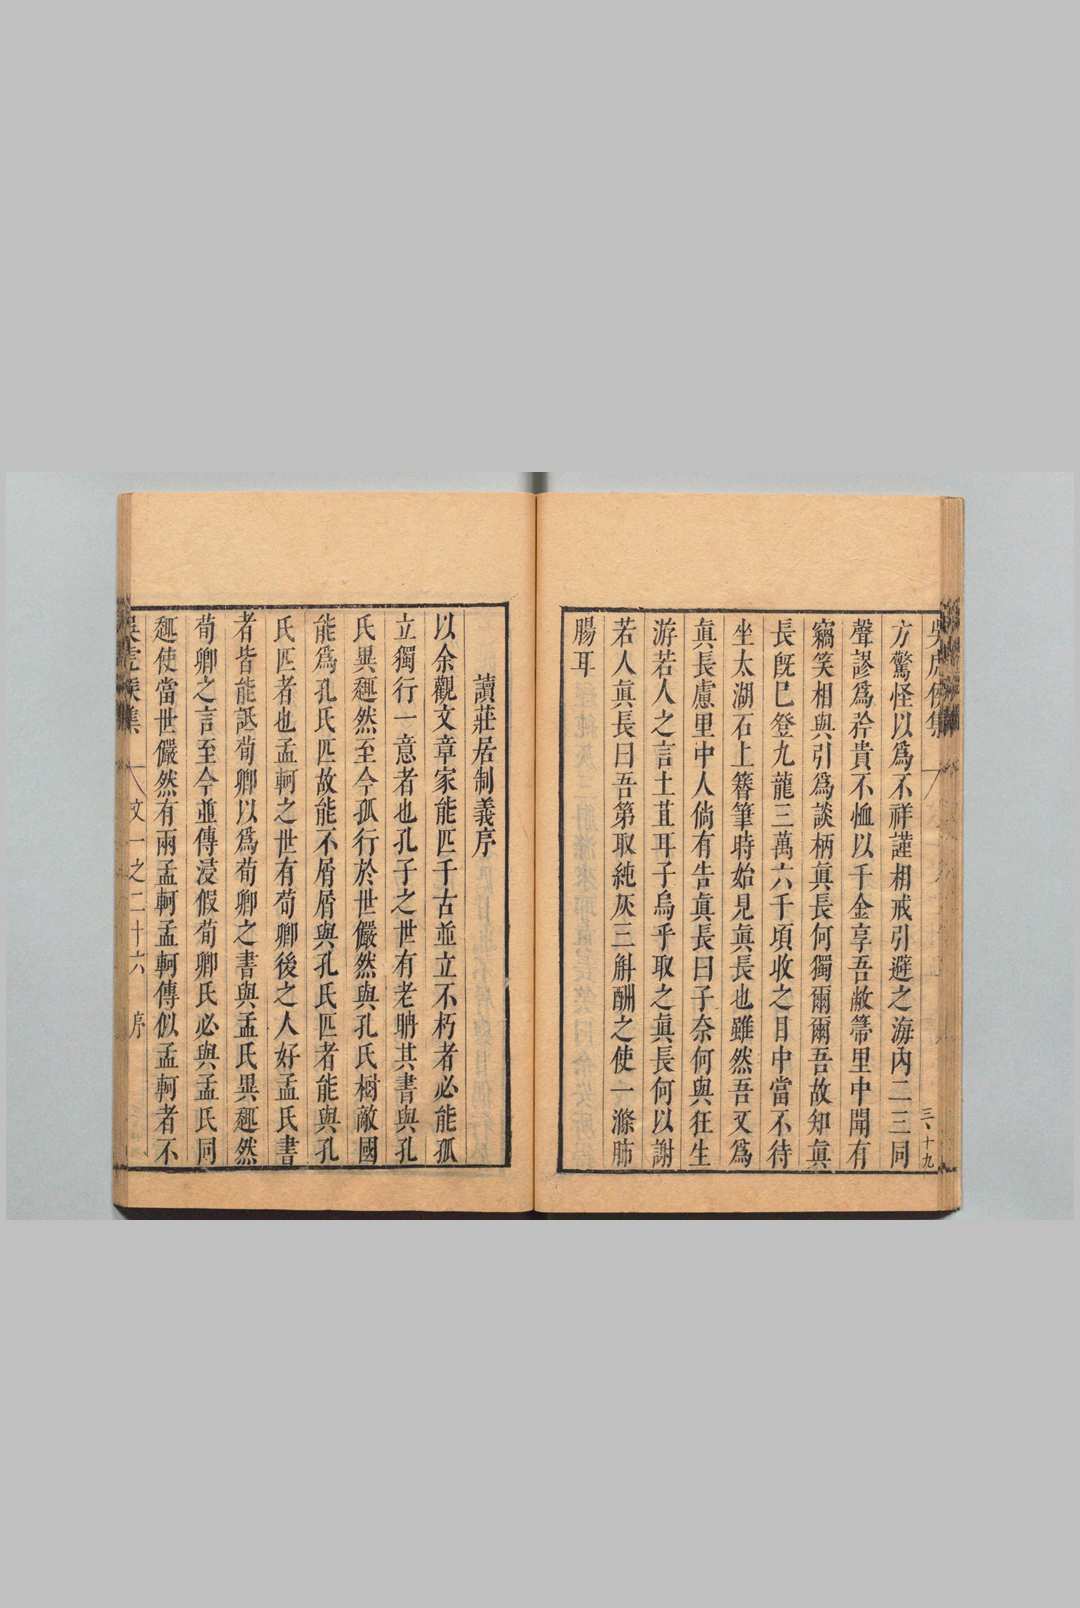 方驚怪以爲不祥謹相戒引避之海內二三同
聲謬爲矜貴不恤以千金享吾敝箒里中聞有
竊笑相與引爲談柄眞長何獨爾爾吾故知眞
長旣已登九龍三萬六千頃收之目中當不待
坐太湖石上簪筆時始見眞長也雖然吾又爲
眞長慮里中人倘有告眞長曰子奈何與狂生
游若人之言土苴耳子烏乎取之眞長何以謝
若人眞長曰吾第取純灰三斛酬之使一滌肺
腸耳
三、十九
讀莊居制義序
以余觀文章家能匹千古並立不朽者必能孤
立獨行一意者也孔子之世有老聃其書與孔
氏異趣然至今孤行於世儼然與孔氏樹敵國
能爲孔氏匹故能不屑屑與孔氏匹者能與孔
氏匹者也孟軻之世有荀卿後之人好孟氏書
者皆能詆荀卿以爲荀卿之書與孟氏異趣然
荀卿之言至今並傳浸假荀卿氏必與孟氏同
趣使當世儼然有兩孟軻孟軻傳似孟軻者不
文一之二十六 序